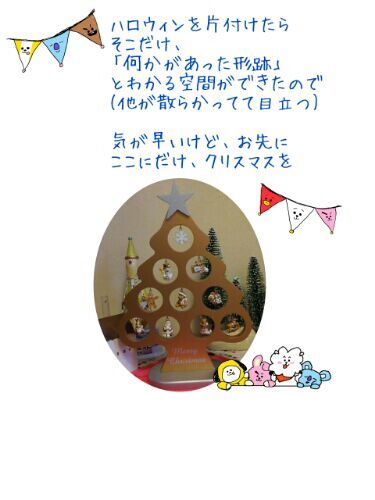 ハロウィンを片付けたら
そこだけ、
「何かがあった形跡」
とわかる空間ができたので
(他が散らかってて目立つ)
気が早いけど、お先に
ここにだけ、クリスマスを
Merry
Christmas